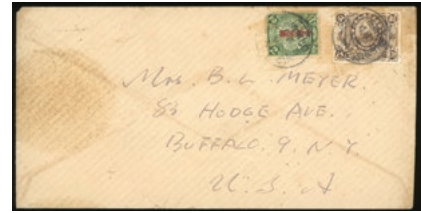 Mrs. B. L. MEYER.
83 HODGE AVE.
BUFFALO. 9. N. Y.
U. S. A